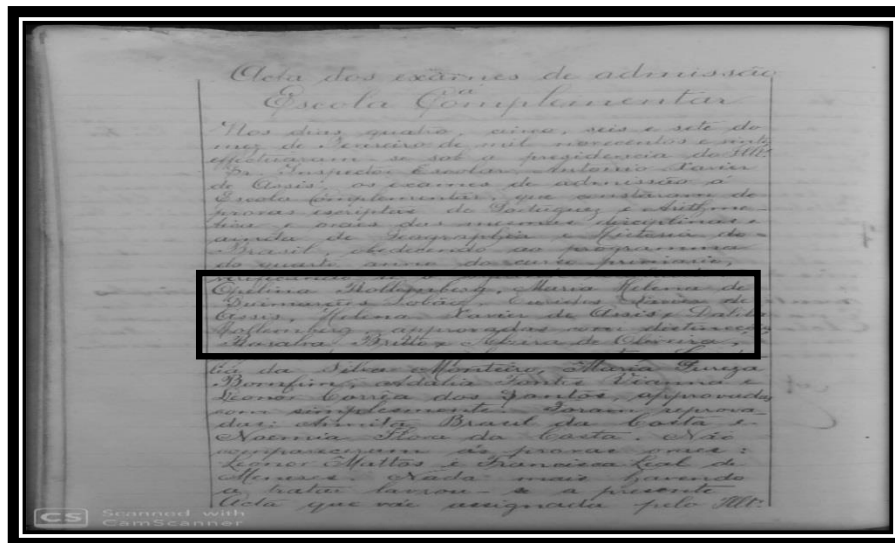 Acta dos exames de admissão
á
Escola Complementar
Nos dias quatro, cinco, seis e sete do
mez de Fevereiro de mil novecentos e vinte
effectuaram-se sob a presidencia do Illº
Sr. Inspector Escolar Antonio Xavier
de Assis, os exames de admissão á
Escola Complementar, que constaram de
provas escriptas de Portuguez e Arithme-
tica e oraes das mesmas disciplinas e
ainda de Geographia e Historia do
Brasil, obedecendo ao programma
do quarto anno do curso primario,
verificando-se o
Maria Helena de
Guimarães Lobão, Eurides Xavier de
Assis, Helena Xavier de Assis e
approvadas com distincção
Britto, de Oliveira,
da Silva Monteiro, Maria
Bomfim, Adalia Fontes Vianna e
Leonor Corrêa dos Santos, approvadas
com simplesmente. Foram reprova-
das: Brasil da Costa e
Noemia Flora da Costa. Não
compareceram ás provas oraes:
Leonor Mattos e Francisca Leal de
Menezes. Nada mais havendo
a tratar lavrou-se a presente
Acta que vae assignada pelo Illº
CS Scanned with
CamScanner